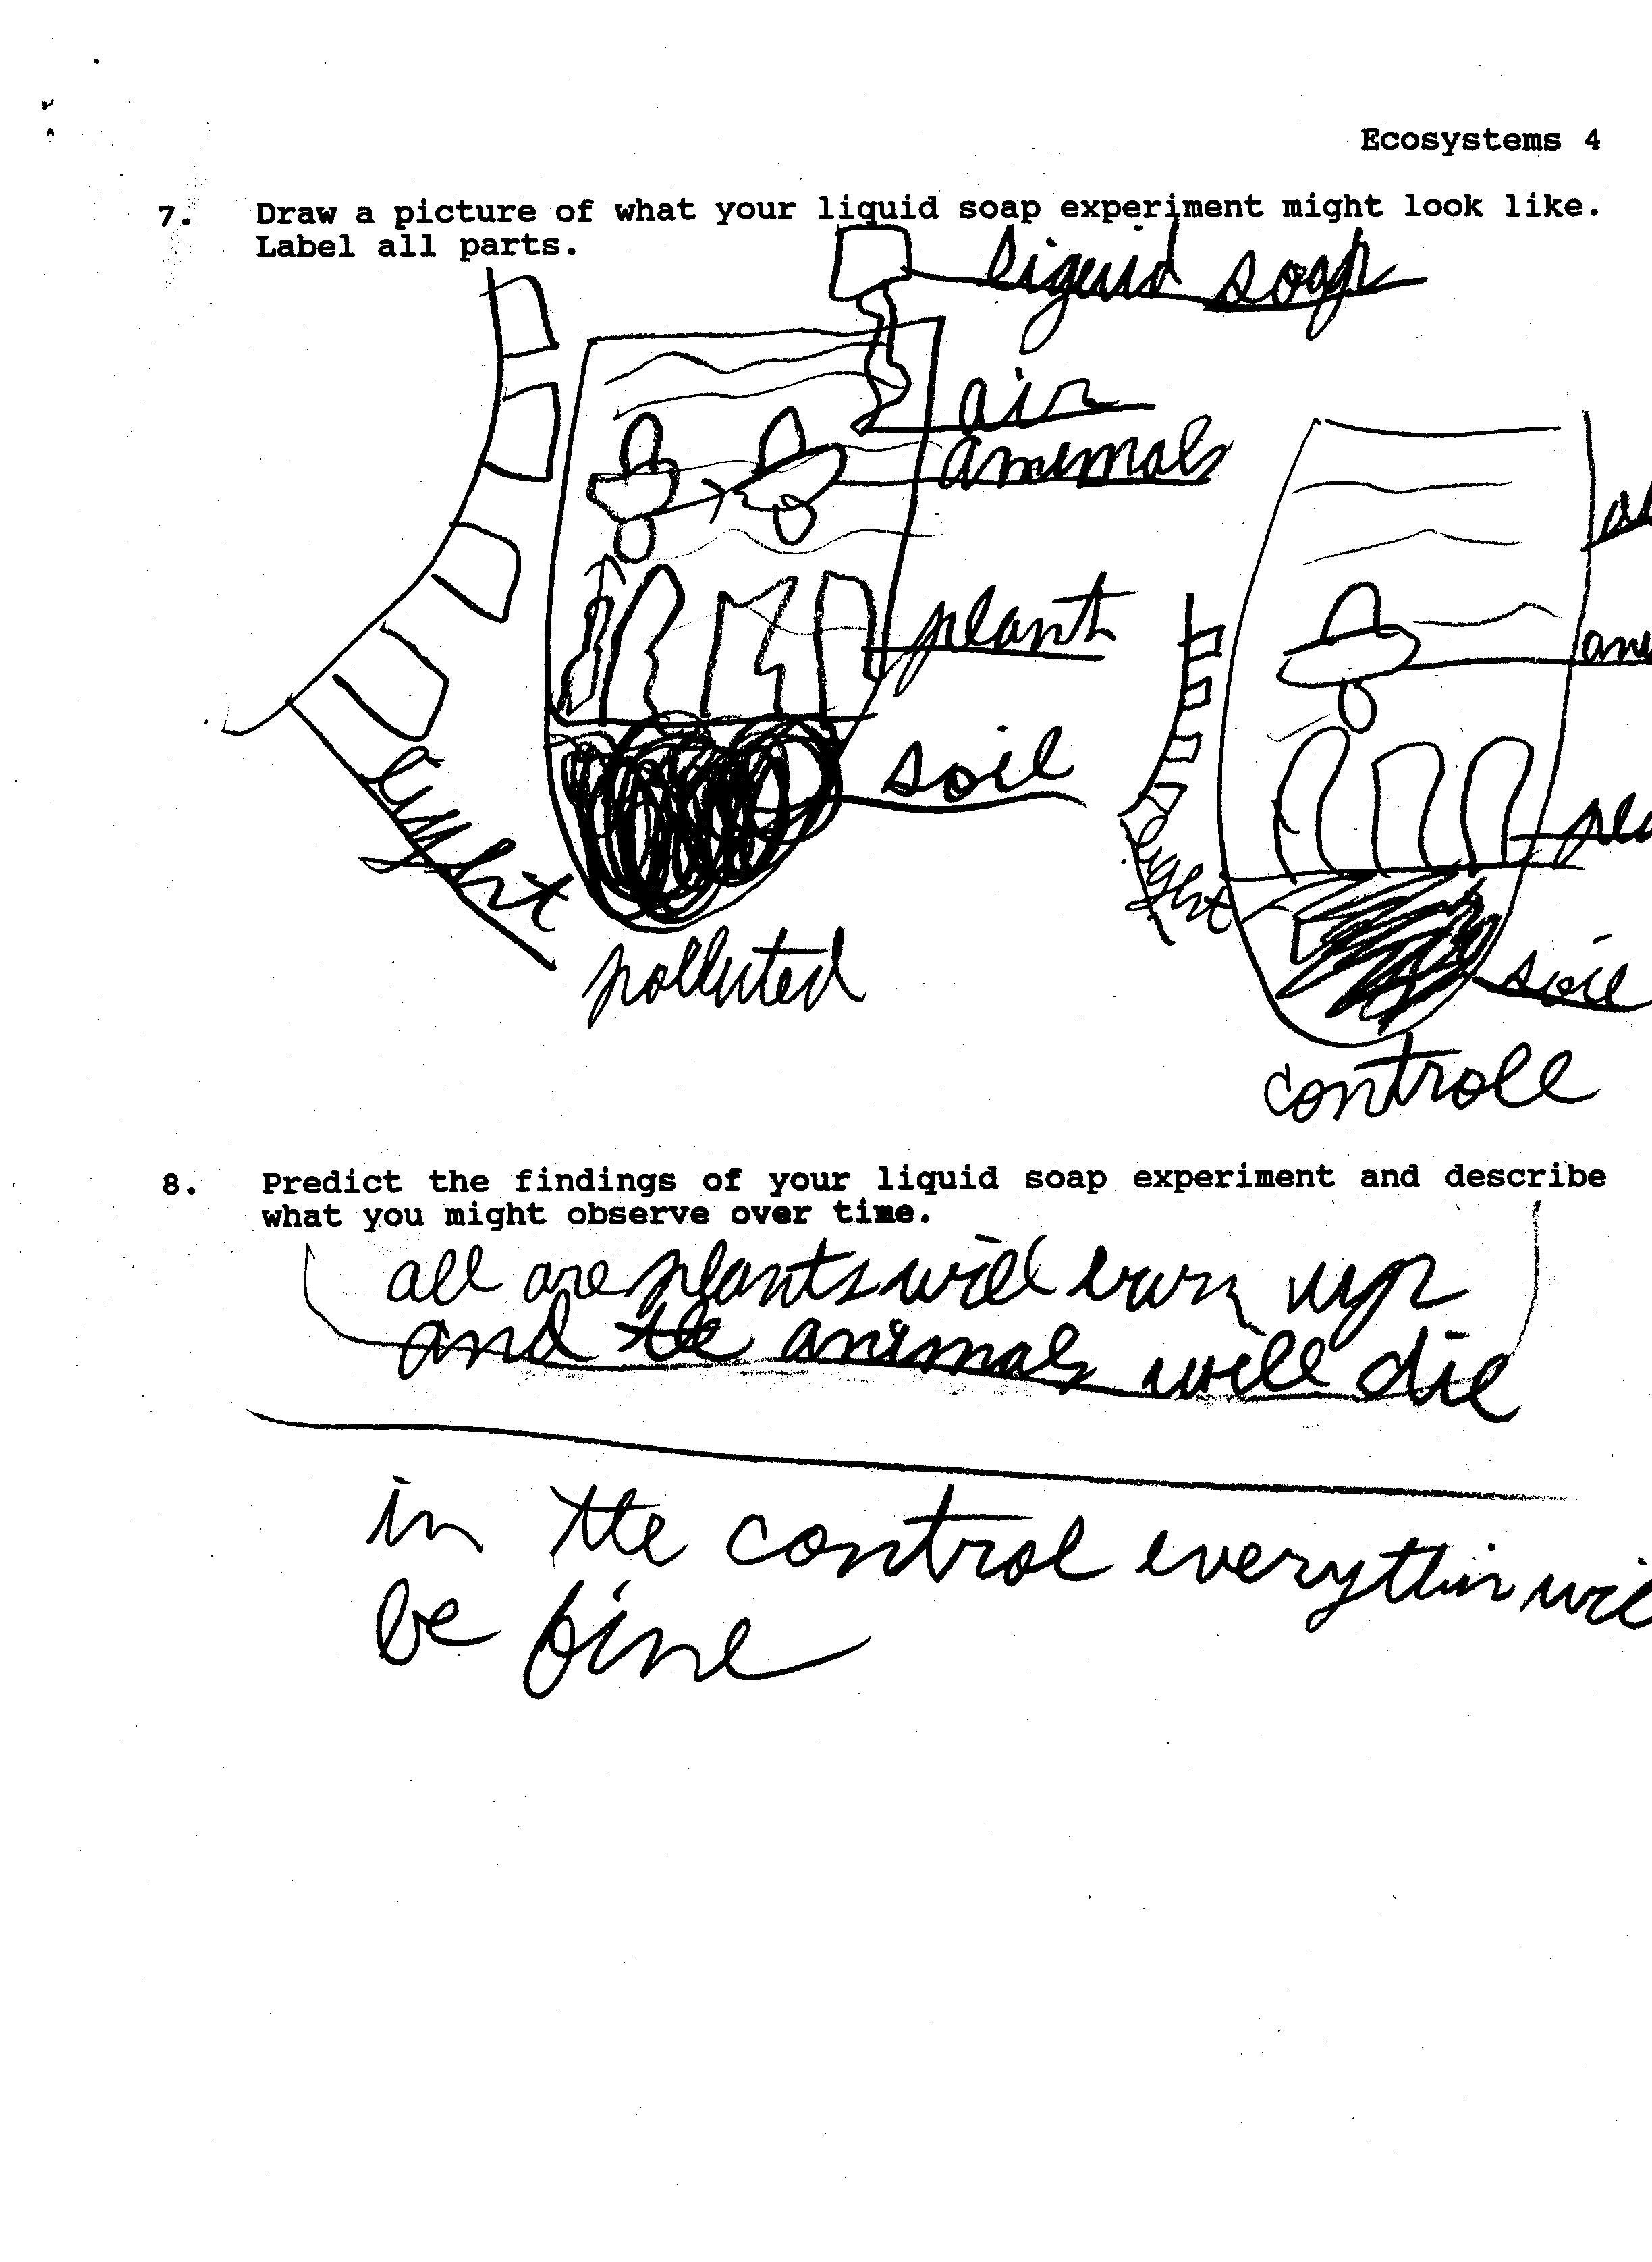 Ecosystems 4
7. Draw a picture of what your liquid soap experiment might look like.
Label all parts.
liquid soap
air
amemals
plant
soil
light
polluted
light
soil
controll
8. Predict the findings of your liquid soap experiment and describe
what you might observe over time.
all are plants will burn up
and the animals will die
in the control everythin
be fine